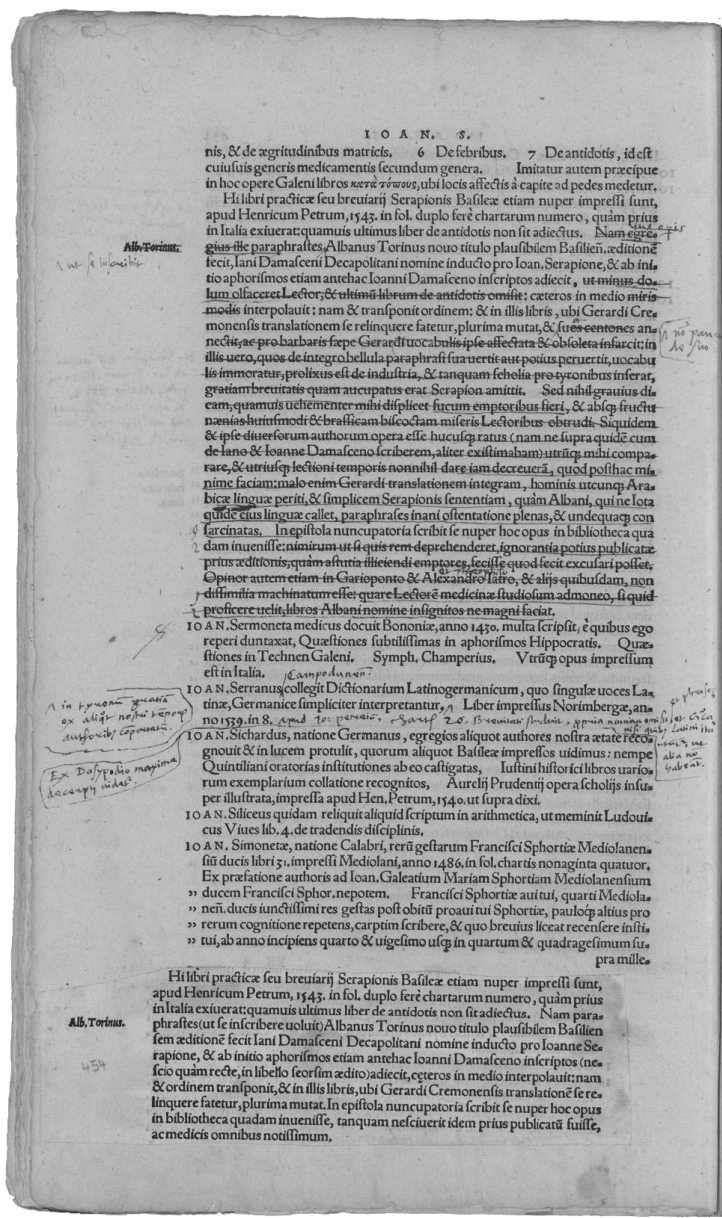 IOAN. S.
nis, & de ægritudinibus matricis. 6 De febribus. 7 De antidotis, id est
cuiusuis generis medicamentis secundum genera. Imitatur autem præcipue
in hoc opere Galeni libros κατὰ τόπους, ubi locis affectis à capite ad pedes medetur.
Hi libri practicæ seu breuiarij Serapionis Basileæ etiam nuper impressi sunt,
apud Henricum Petrum, 1543. in fol. duplo ferè chartarum numero, quàm prius
in Italia exiuerat: quamuis ultimus liber de antidotis non sit adiectus. Nam egre-
Alb. Torinus.
gius ille paraphrastes Albanus Torinus nouo titulo plausibilem Basilien. æditionē
ut se inscribit
fecit, Iani Damasceni Decapolitani nomine inducto pro Ioan. Serapione, & ab ini-
tio aphorismos etiam antehac Ioanni Damasceno inscriptos adiecit, ut minus do-
lum olfaceret Lector, & ultimū librum de antidotis omisit: cæteros in medio miris
modis interpolauit: nam & transponit ordinem: & in illis libris, ubi Gerardi Cre-
monensis translationem se relinquere fatetur, plurima mutat, & suos centones an-
nectit, ac pro barbaris sæpe Gerardi uocabulis ipse affectata & obsoleta infarcit: in
de suo
illis uero, quos de integro bellula paraphrasi sua uertit aut potius peruertit, uocabu
lis immoratur, prolixus est de industria, & tanquam scholia pro tyronibus inserat,
gratiam breuitatis quam aucupatus erat Serapion amittit. Sed nihil grauius di-
cam, quamuis uehementer mihi displicet fucum emptoribus fieri, & absq; fructu
nænias huiusmodi & brassicam biscoctam miseris Lectoribus obtrudi. Siquidem
& ipse diuersorum authorum opera esse hucusq; ratus (nam ne supra quidē cum
de Iano & Ioanne Damasceno scriberem, aliter existimabam) utrūq; mihi compa-
rare, & utriusq; lectioni temporis nonnihil dare iam decreuerā, quod posthac mi-
nime faciam: malo enim Gerardi translationem integram, hominis utcunq; Ara-
bicæ linguæ periti, & simplicem Serapionis sententiam, quàm Albani, qui ne Iota
quidē eius linguæ callet, paraphrases inani ostentatione plenas, & undequaq; con
sarcinatas. In epistola nuncupatoria scribit se nuper hoc opus in bibliotheca qua
dam inuenisse: nimirum ut si quis rem deprehenderet, ignorantia potius publicatæ
prius æditionis, quàm astutia illiciendi emptores, fecisse quod fecit excusari posset.
Opinor autem etiam in Garioponto & Alexandro Iatro, & alijs quibusdam, non
dissimilia machinatum esse: quare Lectorē medicinæ studiosum admoneo, si quid
proficere uelit, libros Albani nomine insignitos ne magni faciat.
IOAN. Sermoneta medicus docuit Bononiæ, anno 1430. multa scripsit, è quibus ego
reperi duntaxat, Quæstiones subtilissimas in aphorismos Hippocratis. Quæ-
stiones in Technen Galeni. Symph. Champerius. Vtrūq; opus impressum
est in Italia. Campodunen:
IOAN. Serranus collegit Dictionarium Latinogermanicum, quo singulæ uoces La-
tinæ, Germanice simpliciter interpretantur. Liber impressus Norimbergæ, an-
no 1539. in 8. apud Io: Petreiū. chartis 26.
Ex Dasypodio maxima
IOAN. Sichardus, natione Germanus, egregios aliquot authores nostra ætate reco-
gnouit & in lucem protulit, quorum aliquot Basileæ impressos uidimus: nempe
Quintiliani oratorias institutiones ab eo castigatas, Iustini historici libros uario-
rum exemplarium collatione recognitos, Aurelij Prudentij opera scholijs insu-
per illustrata, impressa apud Hen. Petrum, 1540. ut supra dixi.
IOAN. Siliceus quidam reliquit aliquid scriptum in arithmetica, ut meminit Ludoui-
cus Viues lib. 4. de tradendis disciplinis.
IOAN. Simonetæ, natione Calabri, rerū gestarum Francisci Sphortiæ Mediolanen-
siū ducis libri 31. impressi Mediolani, anno 1486. in fol. chartis nonaginta quatuor.
Ex præfatione authoris ad Ioan. Galeatium Mariam Sphortiam Mediolanensium
„ ducem Francisci Sphor. nepotem. Francisci Sphortiæ aui tui, quarti Mediola-
„ nen. ducis iunctissimi res gestas post obitū proaui tui Sphortiæ, pauloq; altius pro
„ rerum cognitione repetens, carptim scribere, & quo breuius liceat recensere insti-
„ tui, ab anno incipiens quarto & uigesimo usq; in quartum & quadragesimum su-
pra mille-
Hi libri practicæ seu breuiarij Serapionis Basileæ etiam nuper impressi sunt,
apud Henricum Petrum, 1543. in fol. duplo ferè chartarum numero, quàm prius
in Italia exiuerat: quamuis ultimus liber de antidotis non sit adiectus. Nam para-
Alb. Torinus.
phrastes (ut se inscribere uoluit) Albanus Torinus nouo titulo plausibilem Basilien
sem æditionē fecit Iani Damasceni Decapolitani nomine inducto pro Ioanne Se-
rapione, & ab initio aphorismos etiam antehac Ioanni Damasceno inscriptos (ne-
scio quàm recte, in libello seorsim ædito) adiecit, cęteros in medio interpolauit: nam
454
& ordinem transponit, & in illis libris, ubi Gerardi Cremonensis translationē se re-
linquere fatetur, plurima mutat. In epistola nuncupatoria scribit se nuper hoc opus
in bibliotheca quadam inuenisse, tanquam nesciuerit idem prius publicatū fuisse,
ac medicis omnibus notissimum.